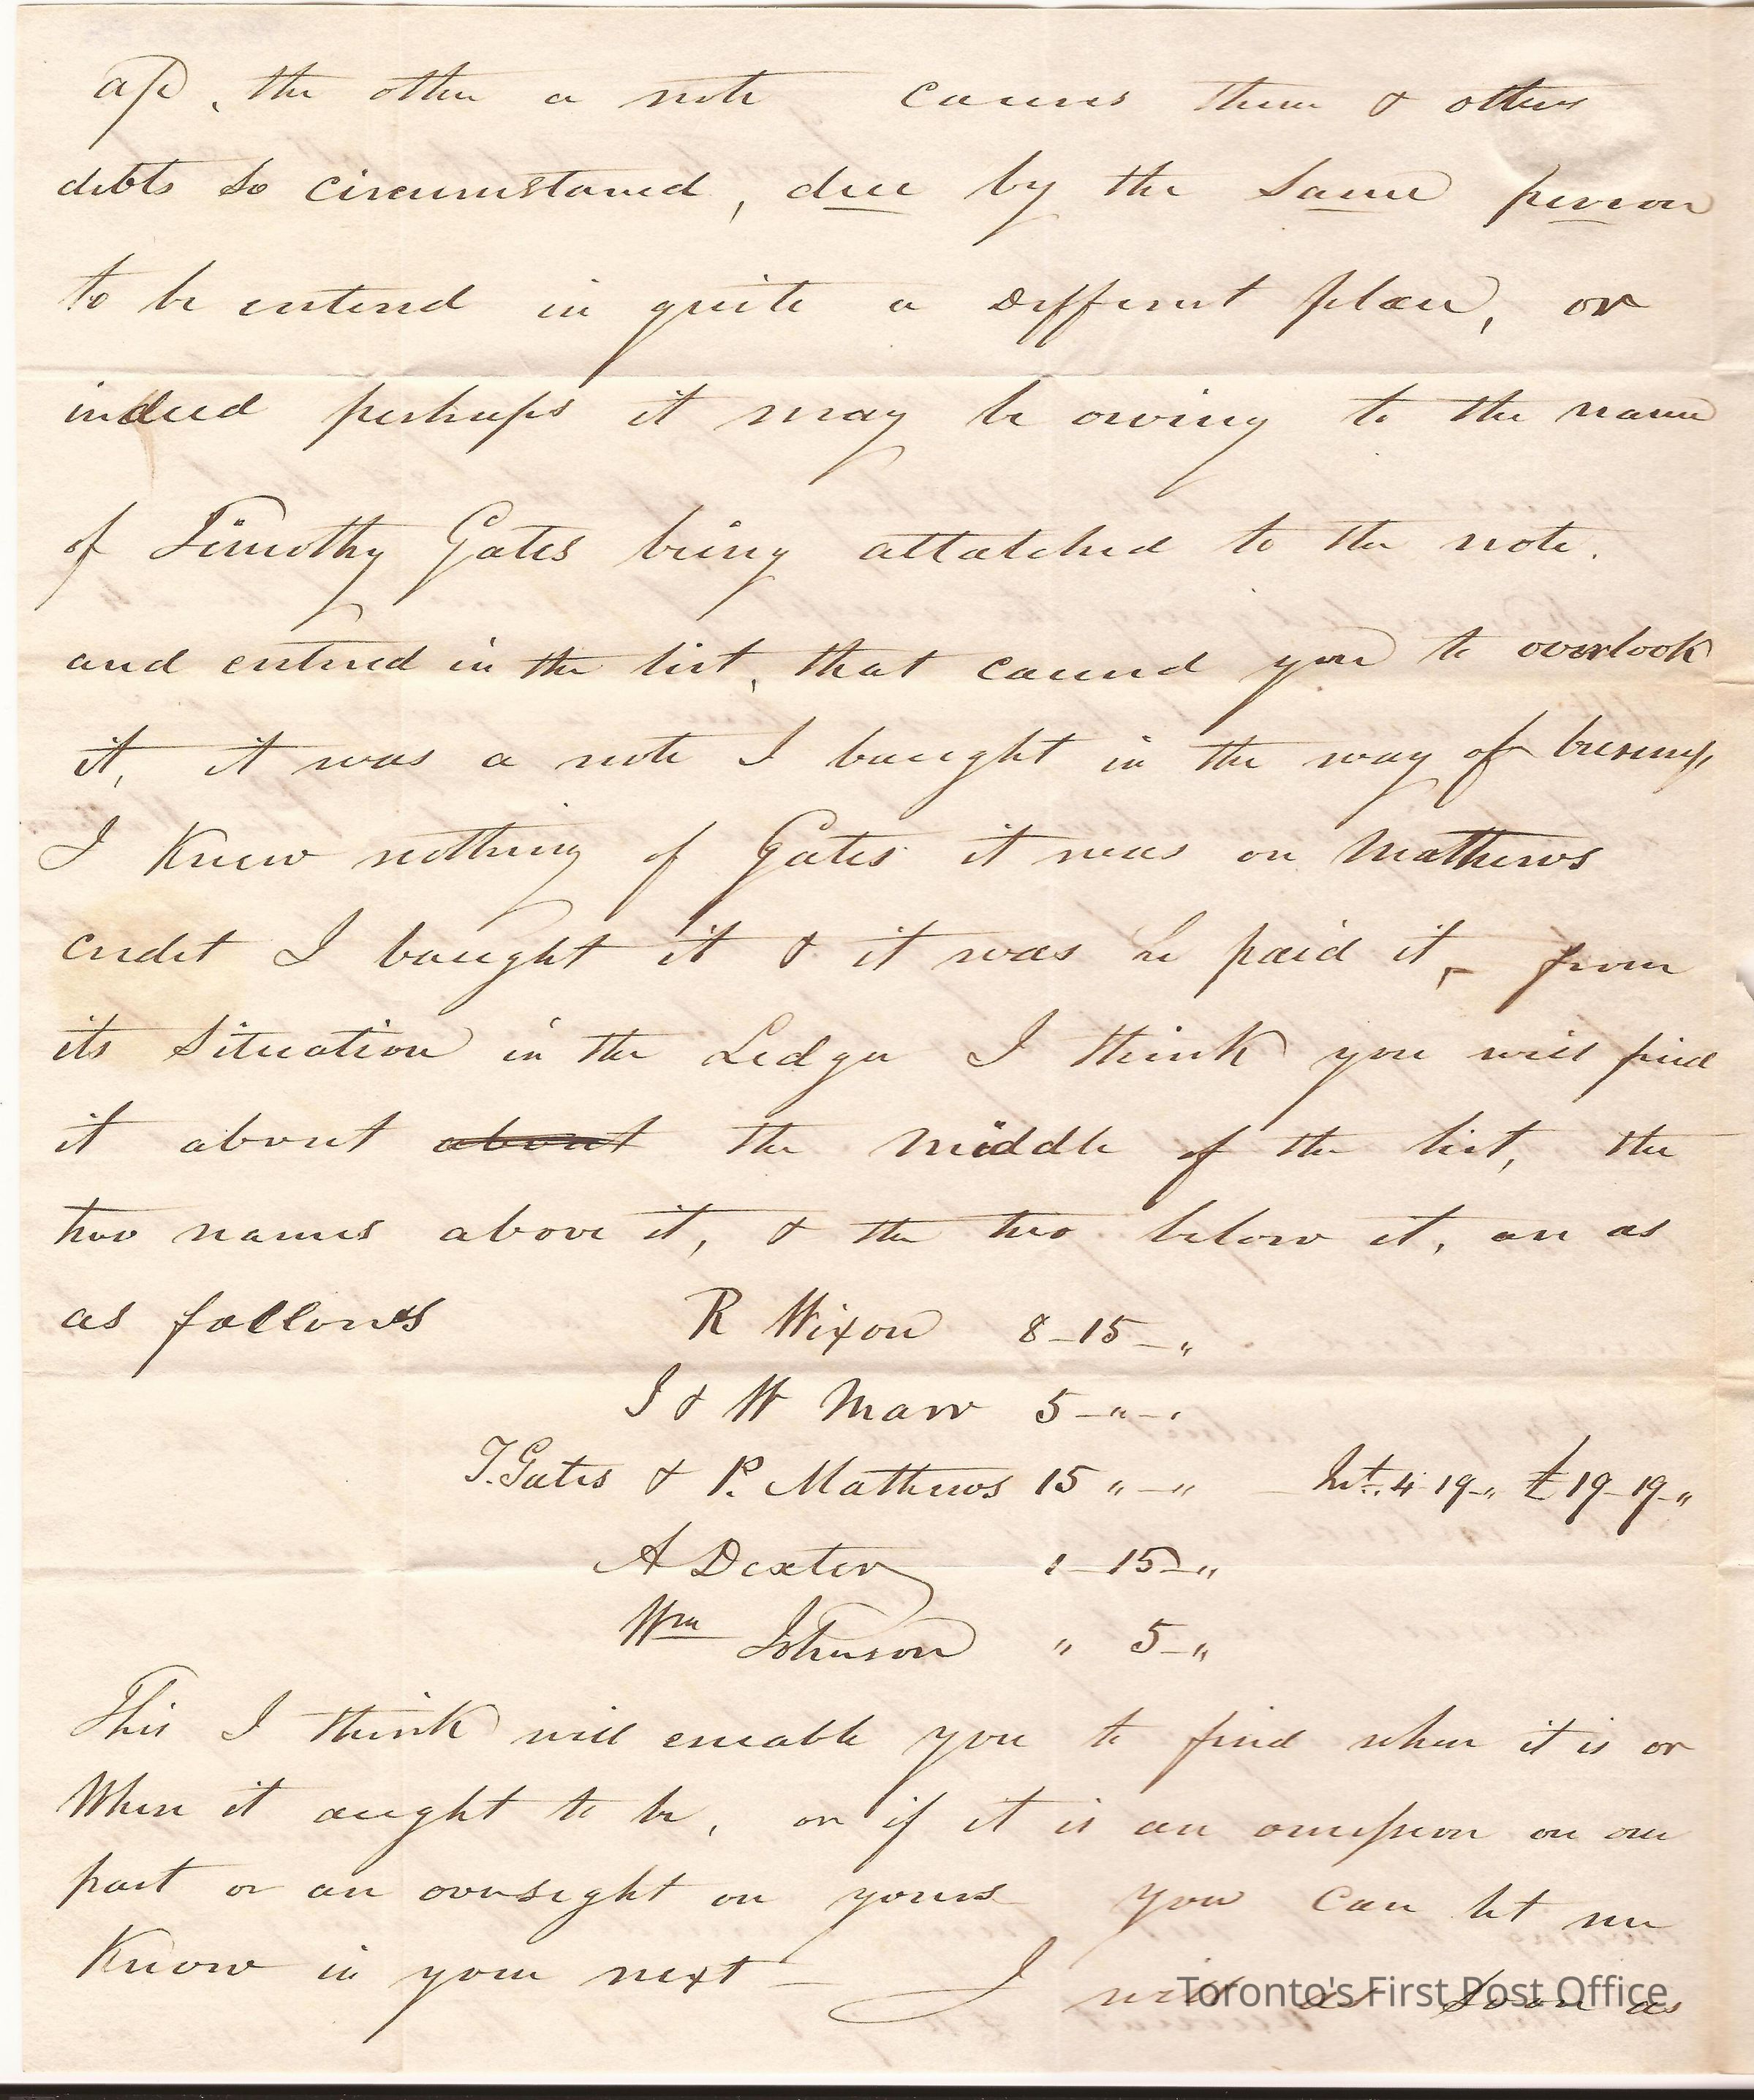 a/c, the other a note causes them & others
debts so circumstanced, due by the same person
to be entered in quite a different place, or
indeed perhaps it may be owing to the name
of Timothy Gates being attatched to the note.
and entered in the list, that caused you to overlook
it, it was a note I bought in the way of business,
I knew nothing of Gates it was on Mathews
credit I bought it & it was he paid it, from
its situation in the Ledger I think you will find
it about about the middle of the list, the
two names above it, & the two below it, are as
as follows R Wixon 8-15-"
J & W Marr 5-"-"
T. Gates & P. Mathews 15 "-" Int. 4-19-" £19-19-"
A Dexter 1-15-"
Wm Johnson " 5-"
This I think will enable you to find where it is or
Where it aught to be, or if it is an omission on our
part or an oversight on yours you can let me
Know in your next - I will as soon as
Toronto's First Post Office